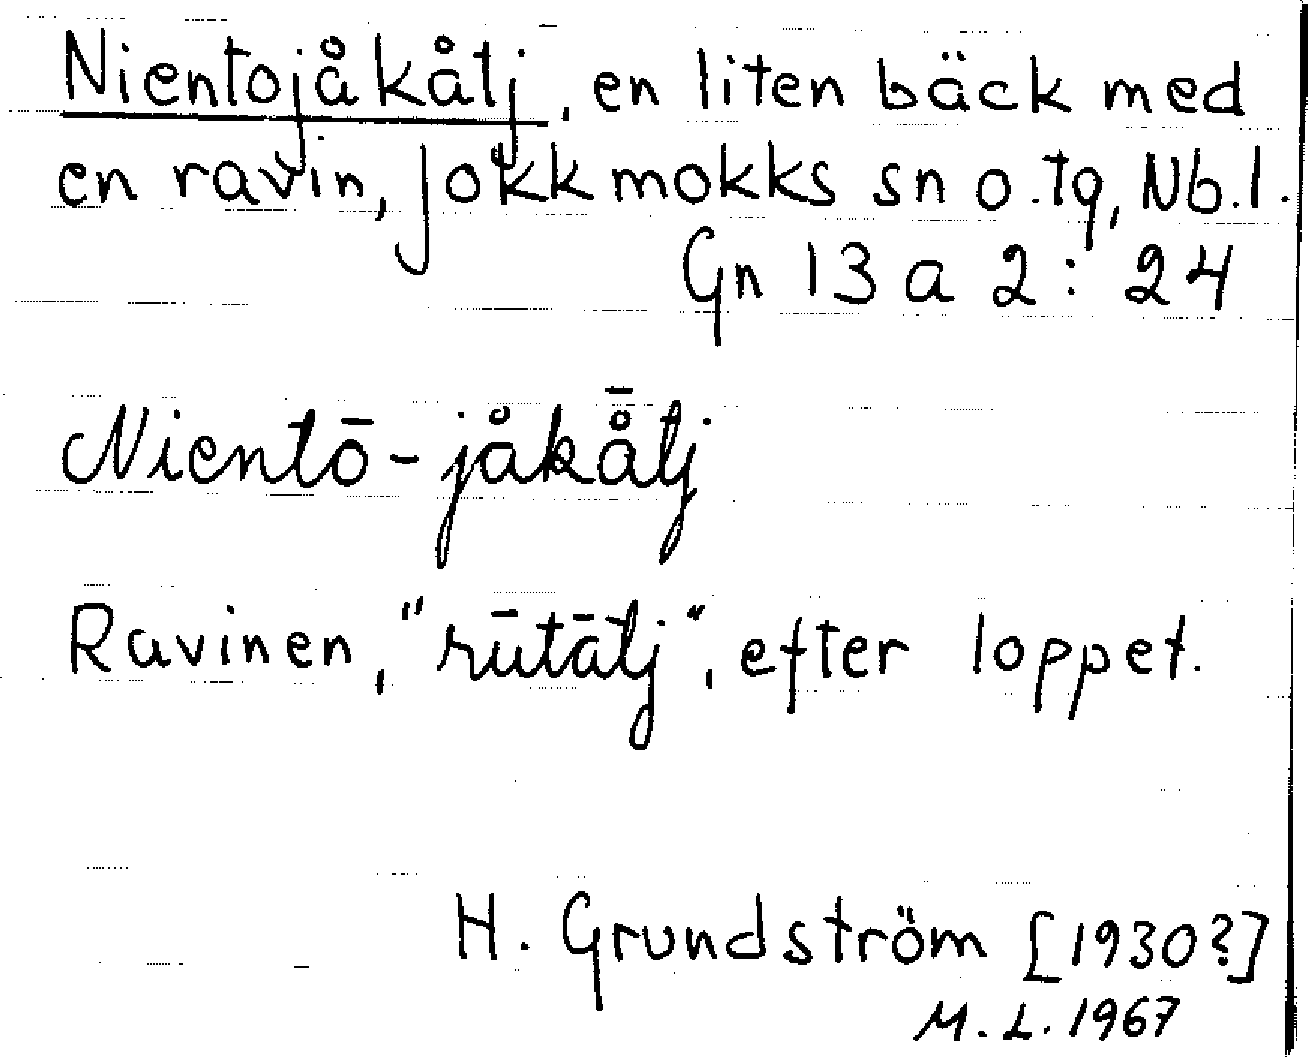 Nientojåkåtj, en liten bäck med
en ravin, Jokkmokks sn o. tg, Nb. l.
Gn 13 a 2: 24
Nientō-jåkå̄tj
Ravinen, "rūtātj", efter loppet.
H. Grundström [1930?]
M. L. 1967